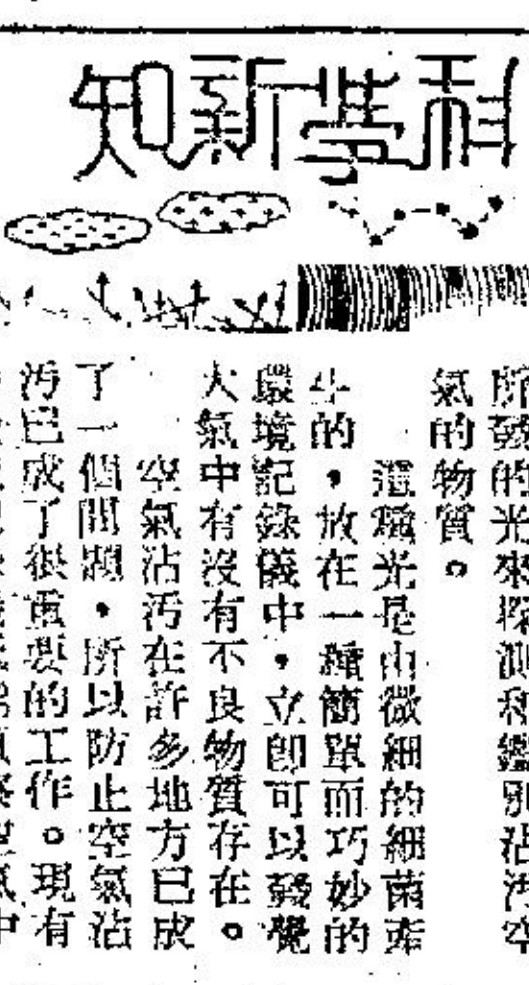 科學新知
所發的光來探測和鑑別沾污空
氣的物質。
這種光是由微細的細菌產
生的，放在一種簡單而巧妙的
環境記錄儀中，立即可以發覺
大氣中有沒有不良物質存在。
空氣沾污在許多地方已成
了一個問題，所以防止空氣沾
污已成了很重要的工作。現有